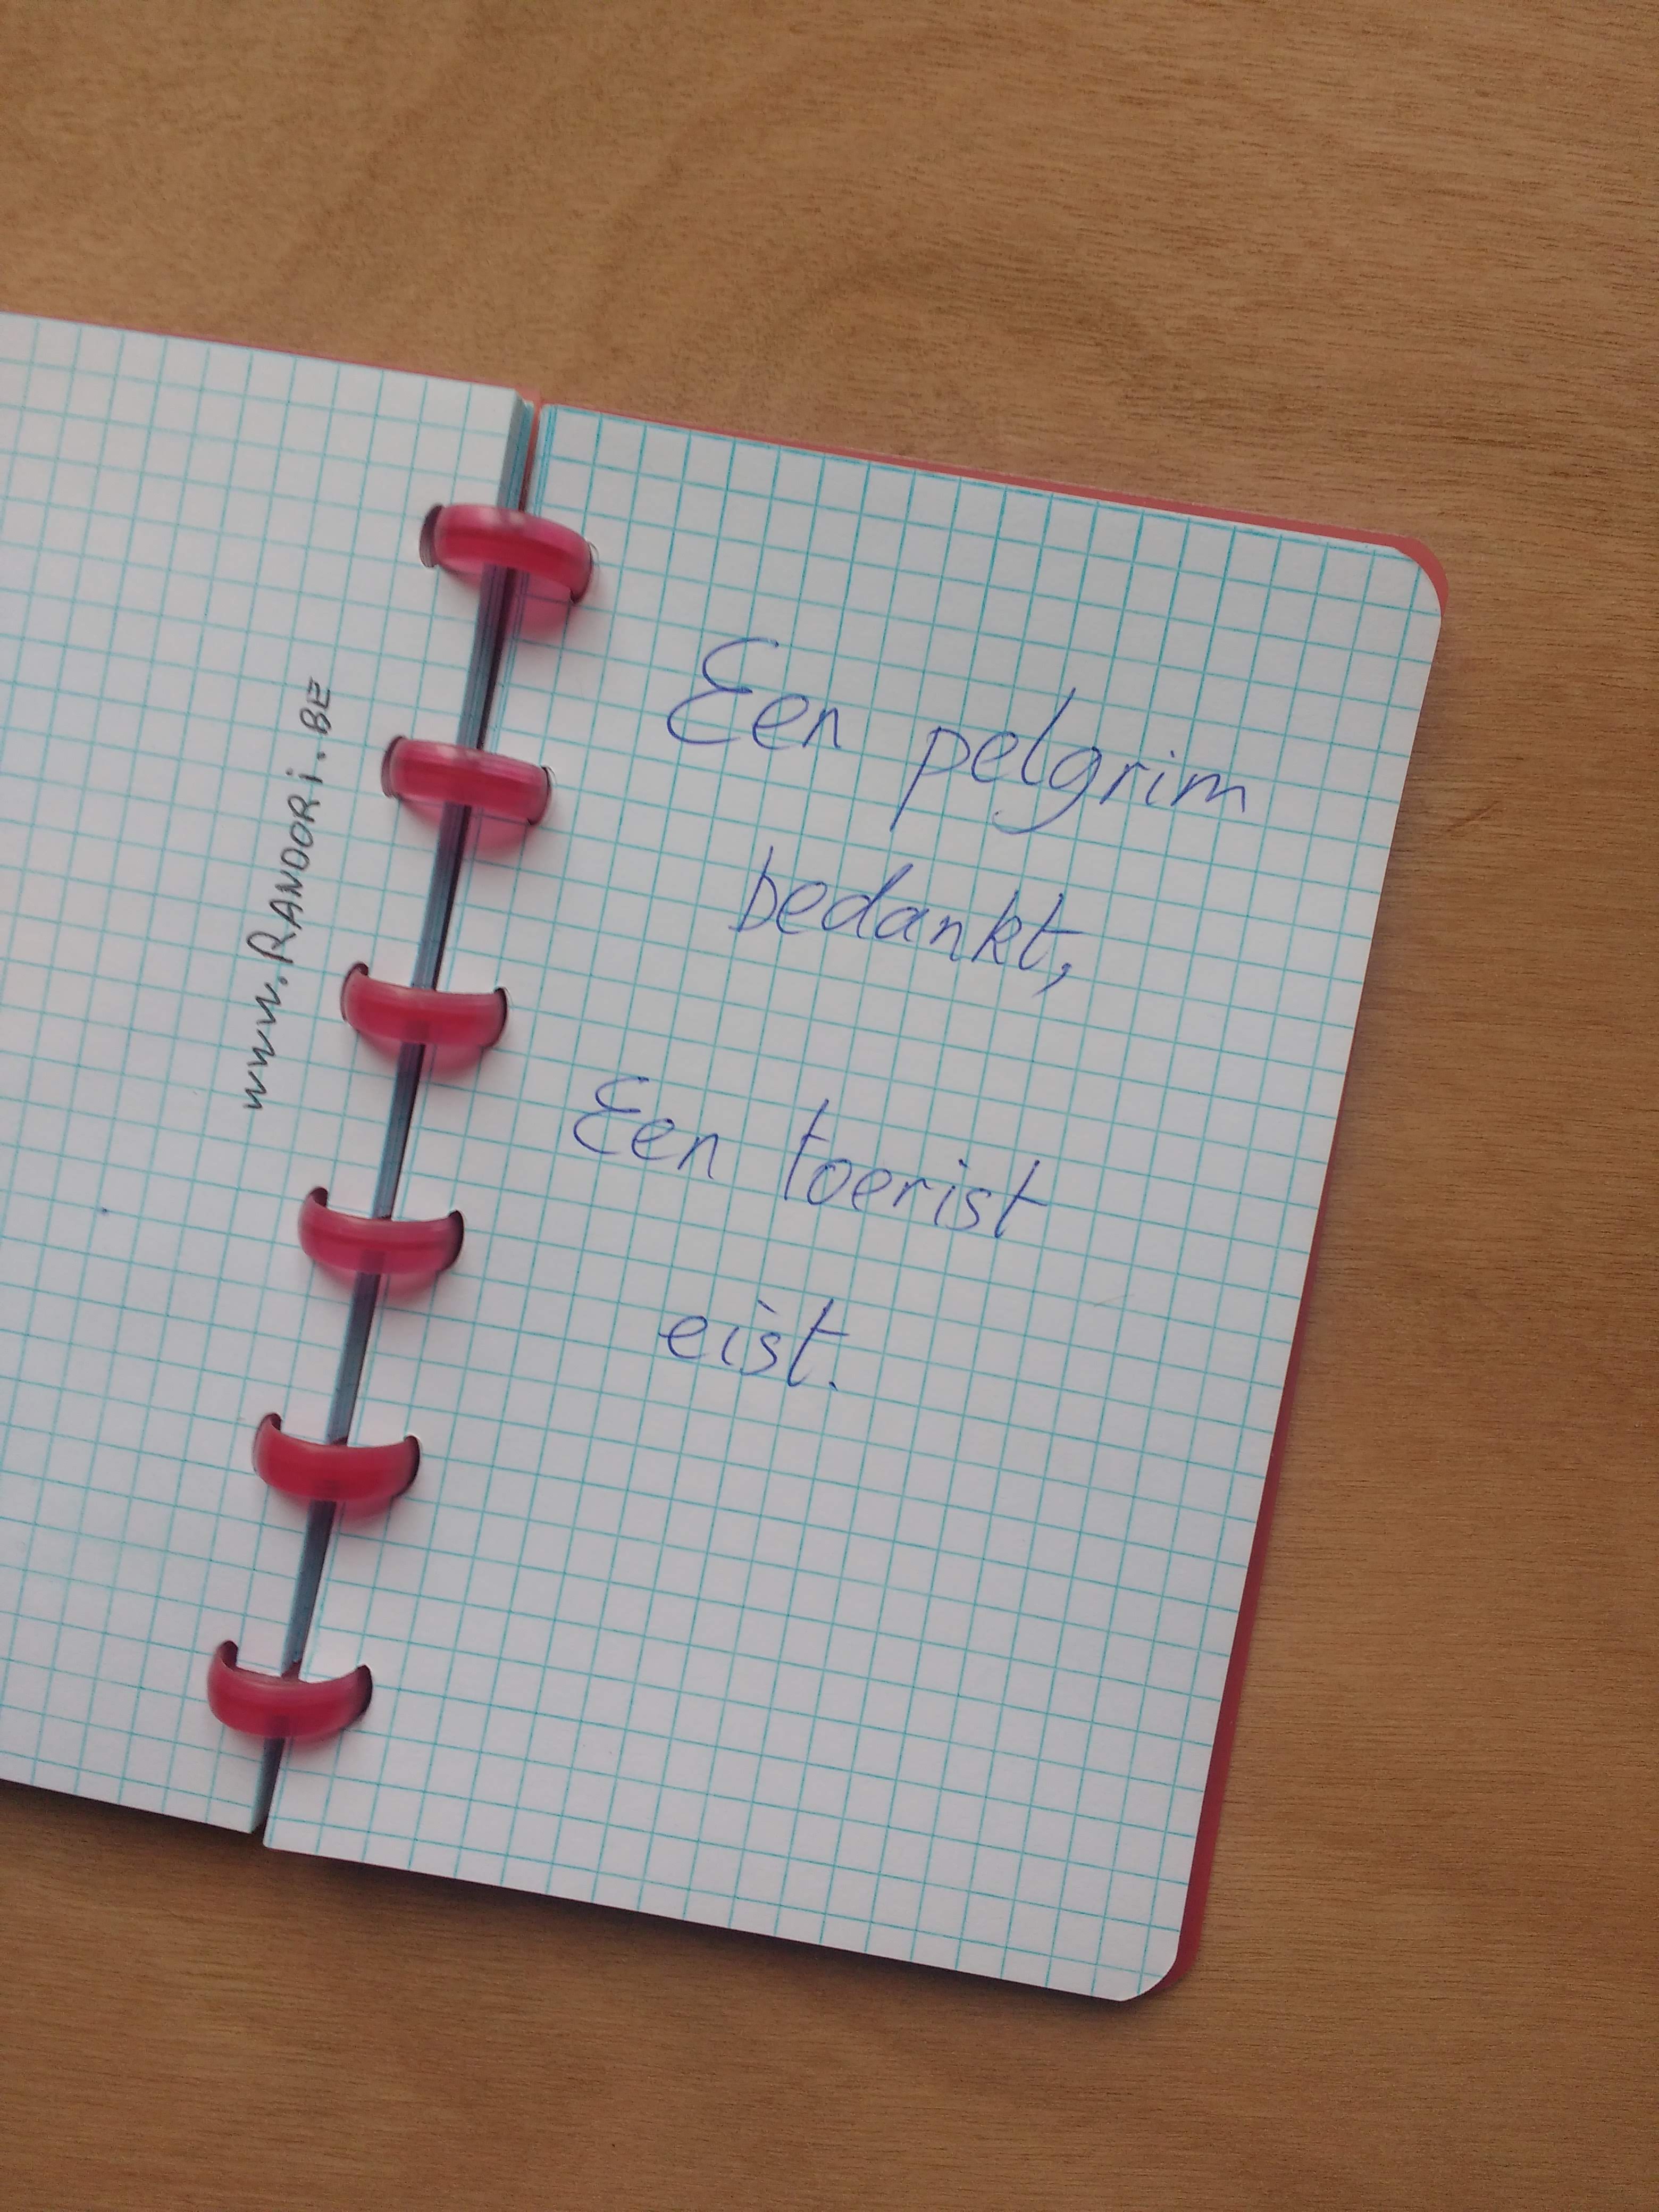 www.RANDORi.BE
Een pelgrim
bedankt,
Een toerist
eist.